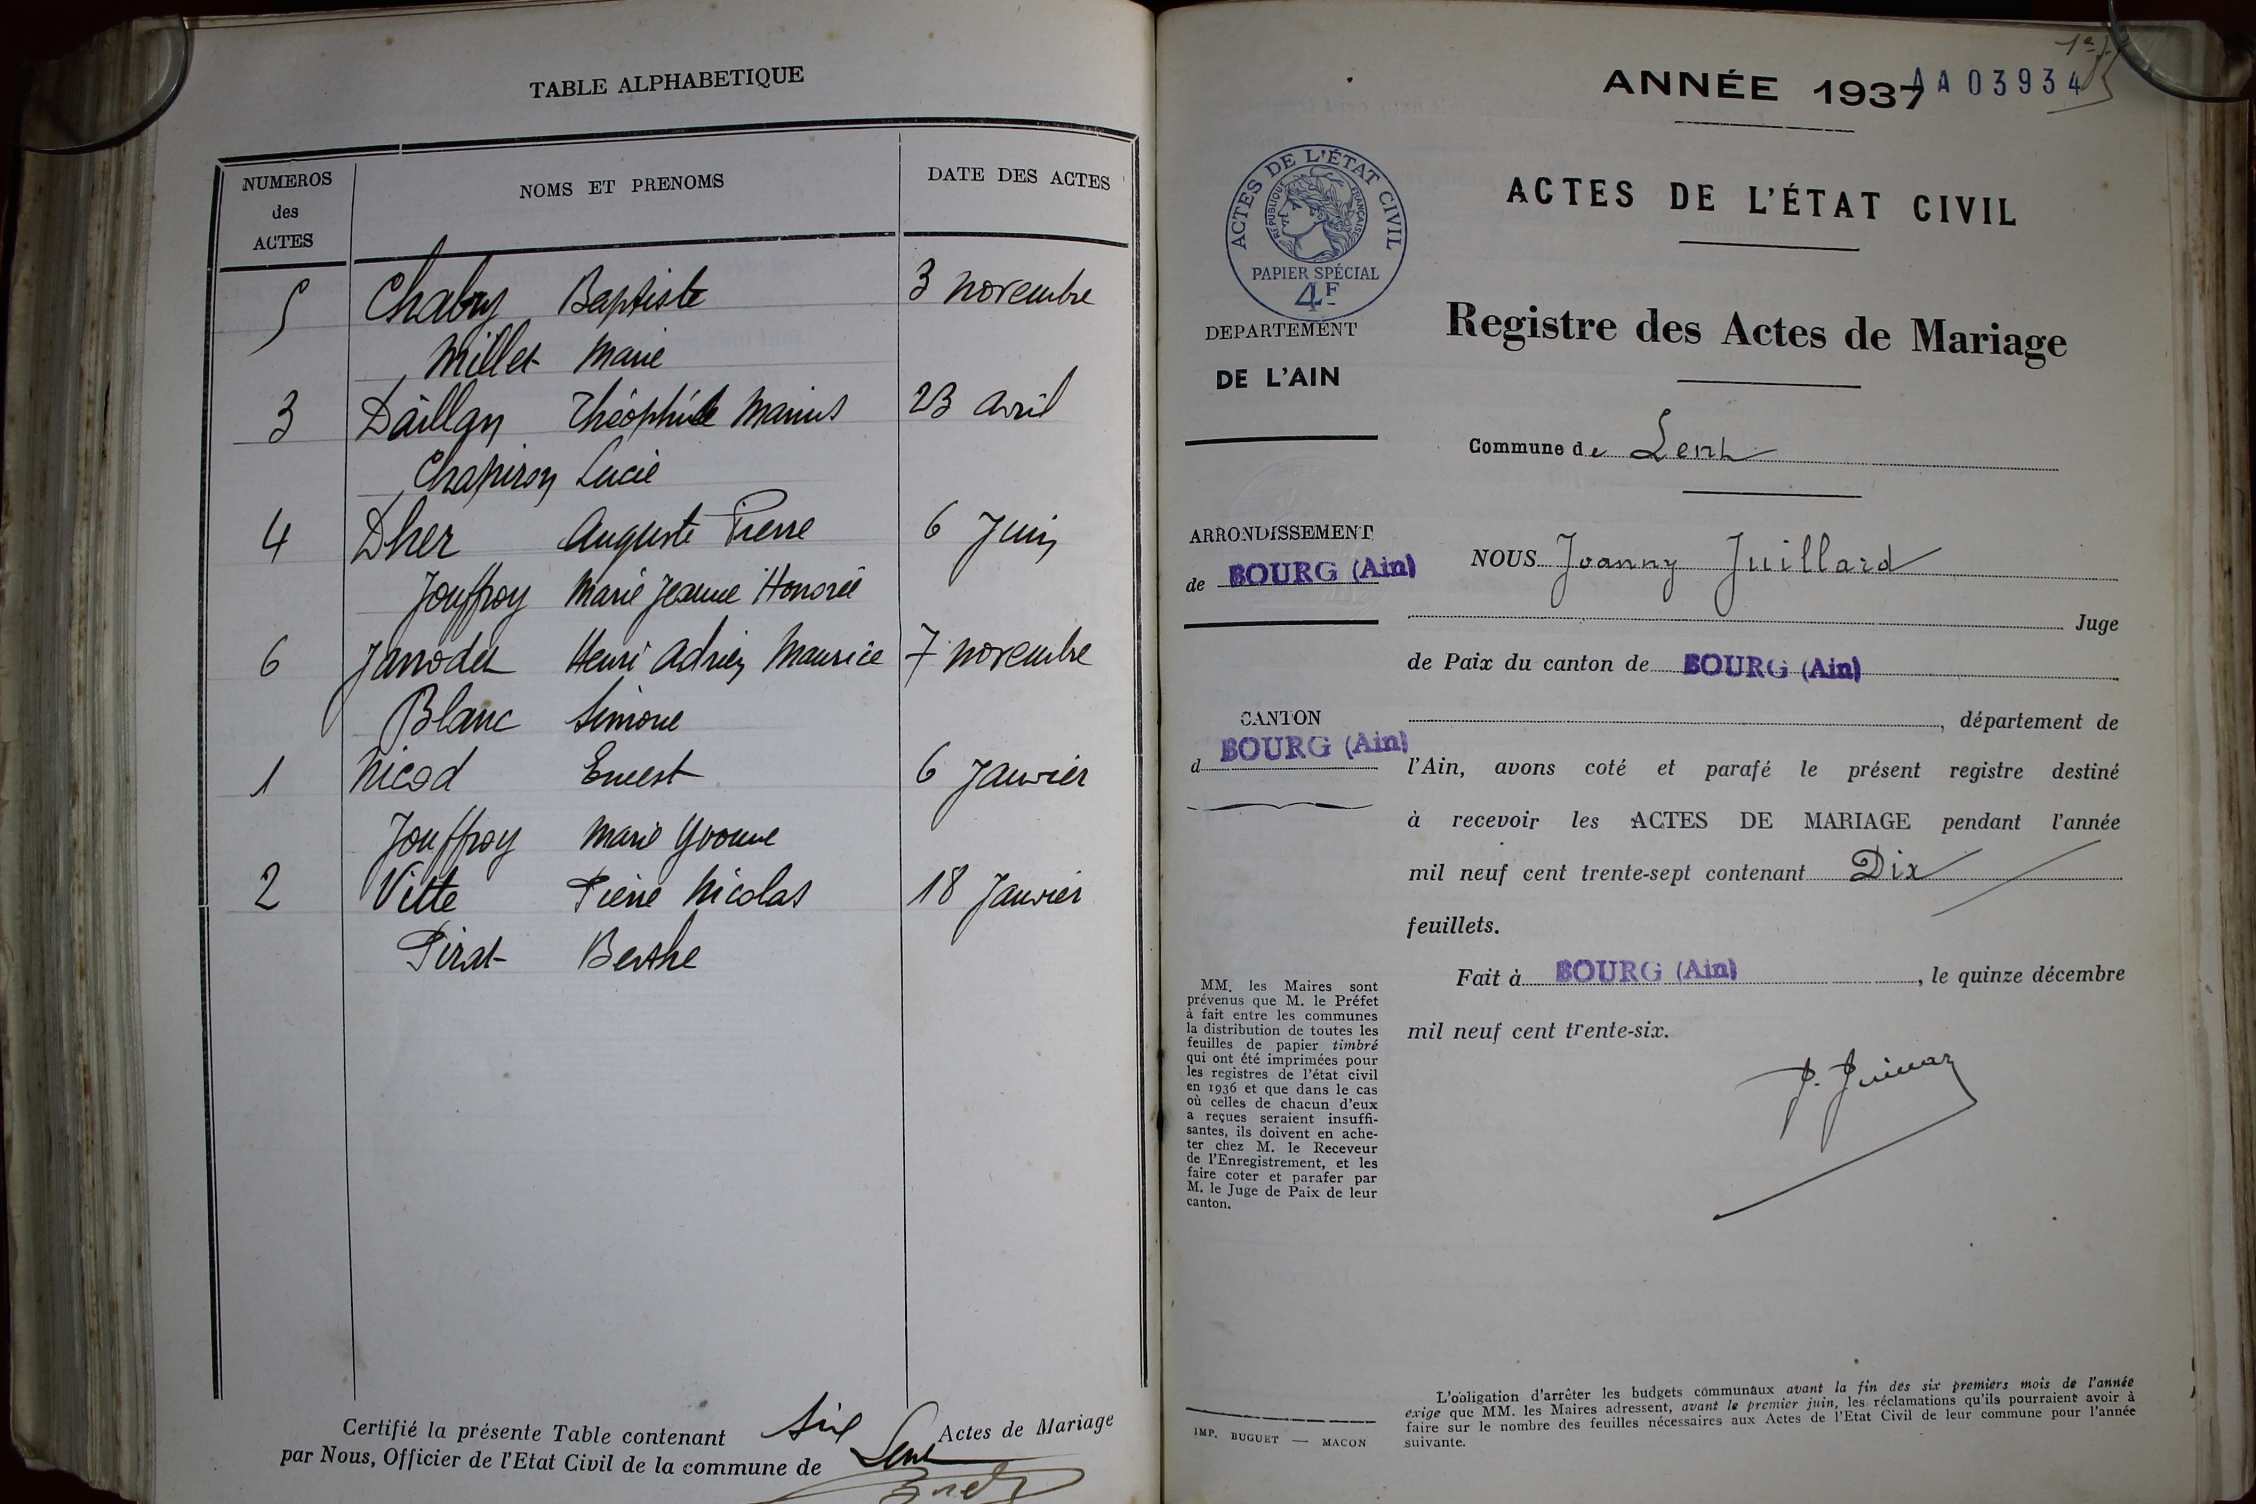 TABLE ALPHABETIQUE
NUMEROS
des
ACTES
NOMS ET PRENOMS
DATE DES ACTES
5 Chabry Baptiste 3 novembre
Millet Marie
3 Daillan Théophile Marius 23 avril
Chapiron Lucie
4 Dher Auguste Pierre 6 Juin
Jouffroy Marie Jeanne Honorée
6 Janodet Henri Adrien Maurice 7 novembre
Blanc Simone
1 Nicod Ernest 6 Janvier
Jouffroy Marie Yvonne
2 Vitte Pierre Nicolas 18 Janvier
Pirat Berthe
Certifié la présente Table contenant six Actes de Mariage
par Nous, Officier de l'Etat Civil de la commune de Lent
ANNÉE 1937
AA 03934
ACTES DE L'ÉTAT CIVIL
RÉPUBLIQUE FRANÇAISE
PAPIER SPÉCIAL
4F
DEPARTEMENT
DE L'AIN
ARRONDISSEMENT
de BOURG (Ain)
CANTON
d BOURG (Ain)
MM. les Maires sont
prévenus que M. le Préfet
à fait entre les communes
la distribution de toutes les
feuilles de papier timbré
qui ont été imprimées pour
les registres de l'état civil
en 1936 et que dans le cas
où celles de chacun d'eux
a reçues seraient insuffi-
santes, ils doivent en ache-
ter chez M. le Receveur
de l'Enregistrement, et les
faire coter et parafer par
M. le Juge de Paix de leur
canton.
IMP. BUGUET — MACON
ACTES DE L'ÉTAT CIVIL
Registre des Actes de Mariage
Commune de Lent
NOUS Joanny Juillard
Juge
de Paix du canton de BOURG (Ain)
, département de
l'Ain, avons coté et parafé le présent registre destiné
à recevoir les ACTES DE MARIAGE pendant l'année
mil neuf cent trente-sept contenant Dix
feuillets.
Fait à BOURG (Ain), le quinze décembre
mil neuf cent trente-six.
L'obligation d'arrêter les budgets communaux avant la fin des six premiers mois de l'année
exige que MM. les Maires adressent, avant le premier juin, les réclamations qu'ils pourraient avoir à
faire sur le nombre des feuilles nécessaires aux Actes de l'Etat Civil de leur commune pour l'année
suivante.